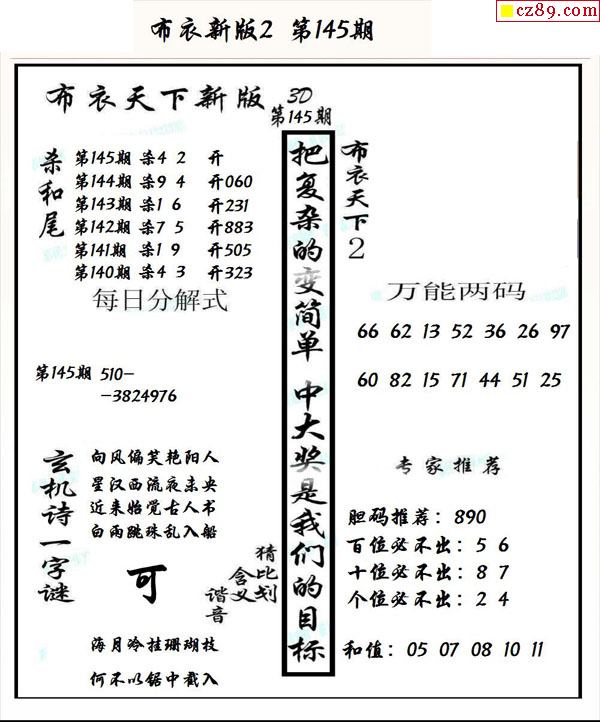 cz89.com
布衣新版2 第145期
布衣天下新版 3D
第145期
杀和尾
第145期 杀4 2 开
第144期 杀9 4 开060
第143期 杀1 6 开231
第142期 杀7 5 开883
第141期 杀1 9 开505
第140期 杀4 3 开323
每日分解式
第145期 510-
-3824976
玄机诗一字谜
向风偏笑艳阳人
星汉西流夜未央
近来始觉古人书
白雨跳珠乱入船
可
猜比划
含义
谐音
海月冷挂珊瑚枝
何不以锯中截入
把复杂的变简单 中大奖是我们的目标
布衣天下2
万能两码
66 62 13 52 36 26 97
60 82 15 71 44 51 25
专家推荐
胆码推荐：890
百位必不出：5 6
十位必不出：8 7
个位必不出：2 4
和值：05 07 08 10 11